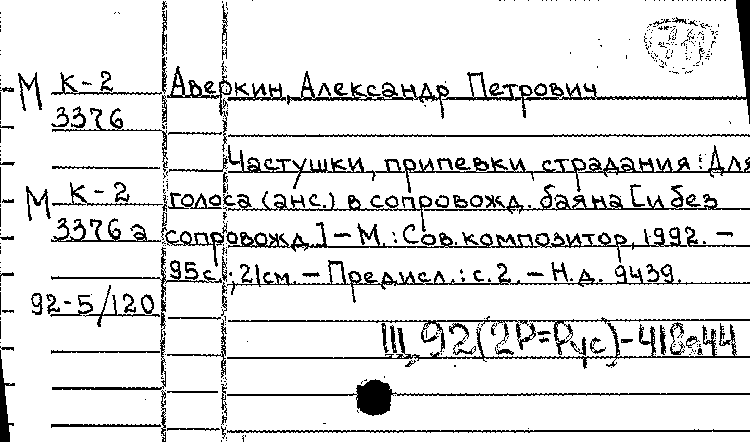 М К-2 Аверкин, Александр Петрович
3376
Частушки, припевки, страдания: Для
М К-2 голоса (анс.) в сопровожд. баяна [и без
3376 а сопровожд.] - М.: Сов. композитор, 1992. -
95с.; 21см. - Предисл.: с. 2. - Н.д. 9439.
92-5/120
Щ 92(2Р=Рус)-418